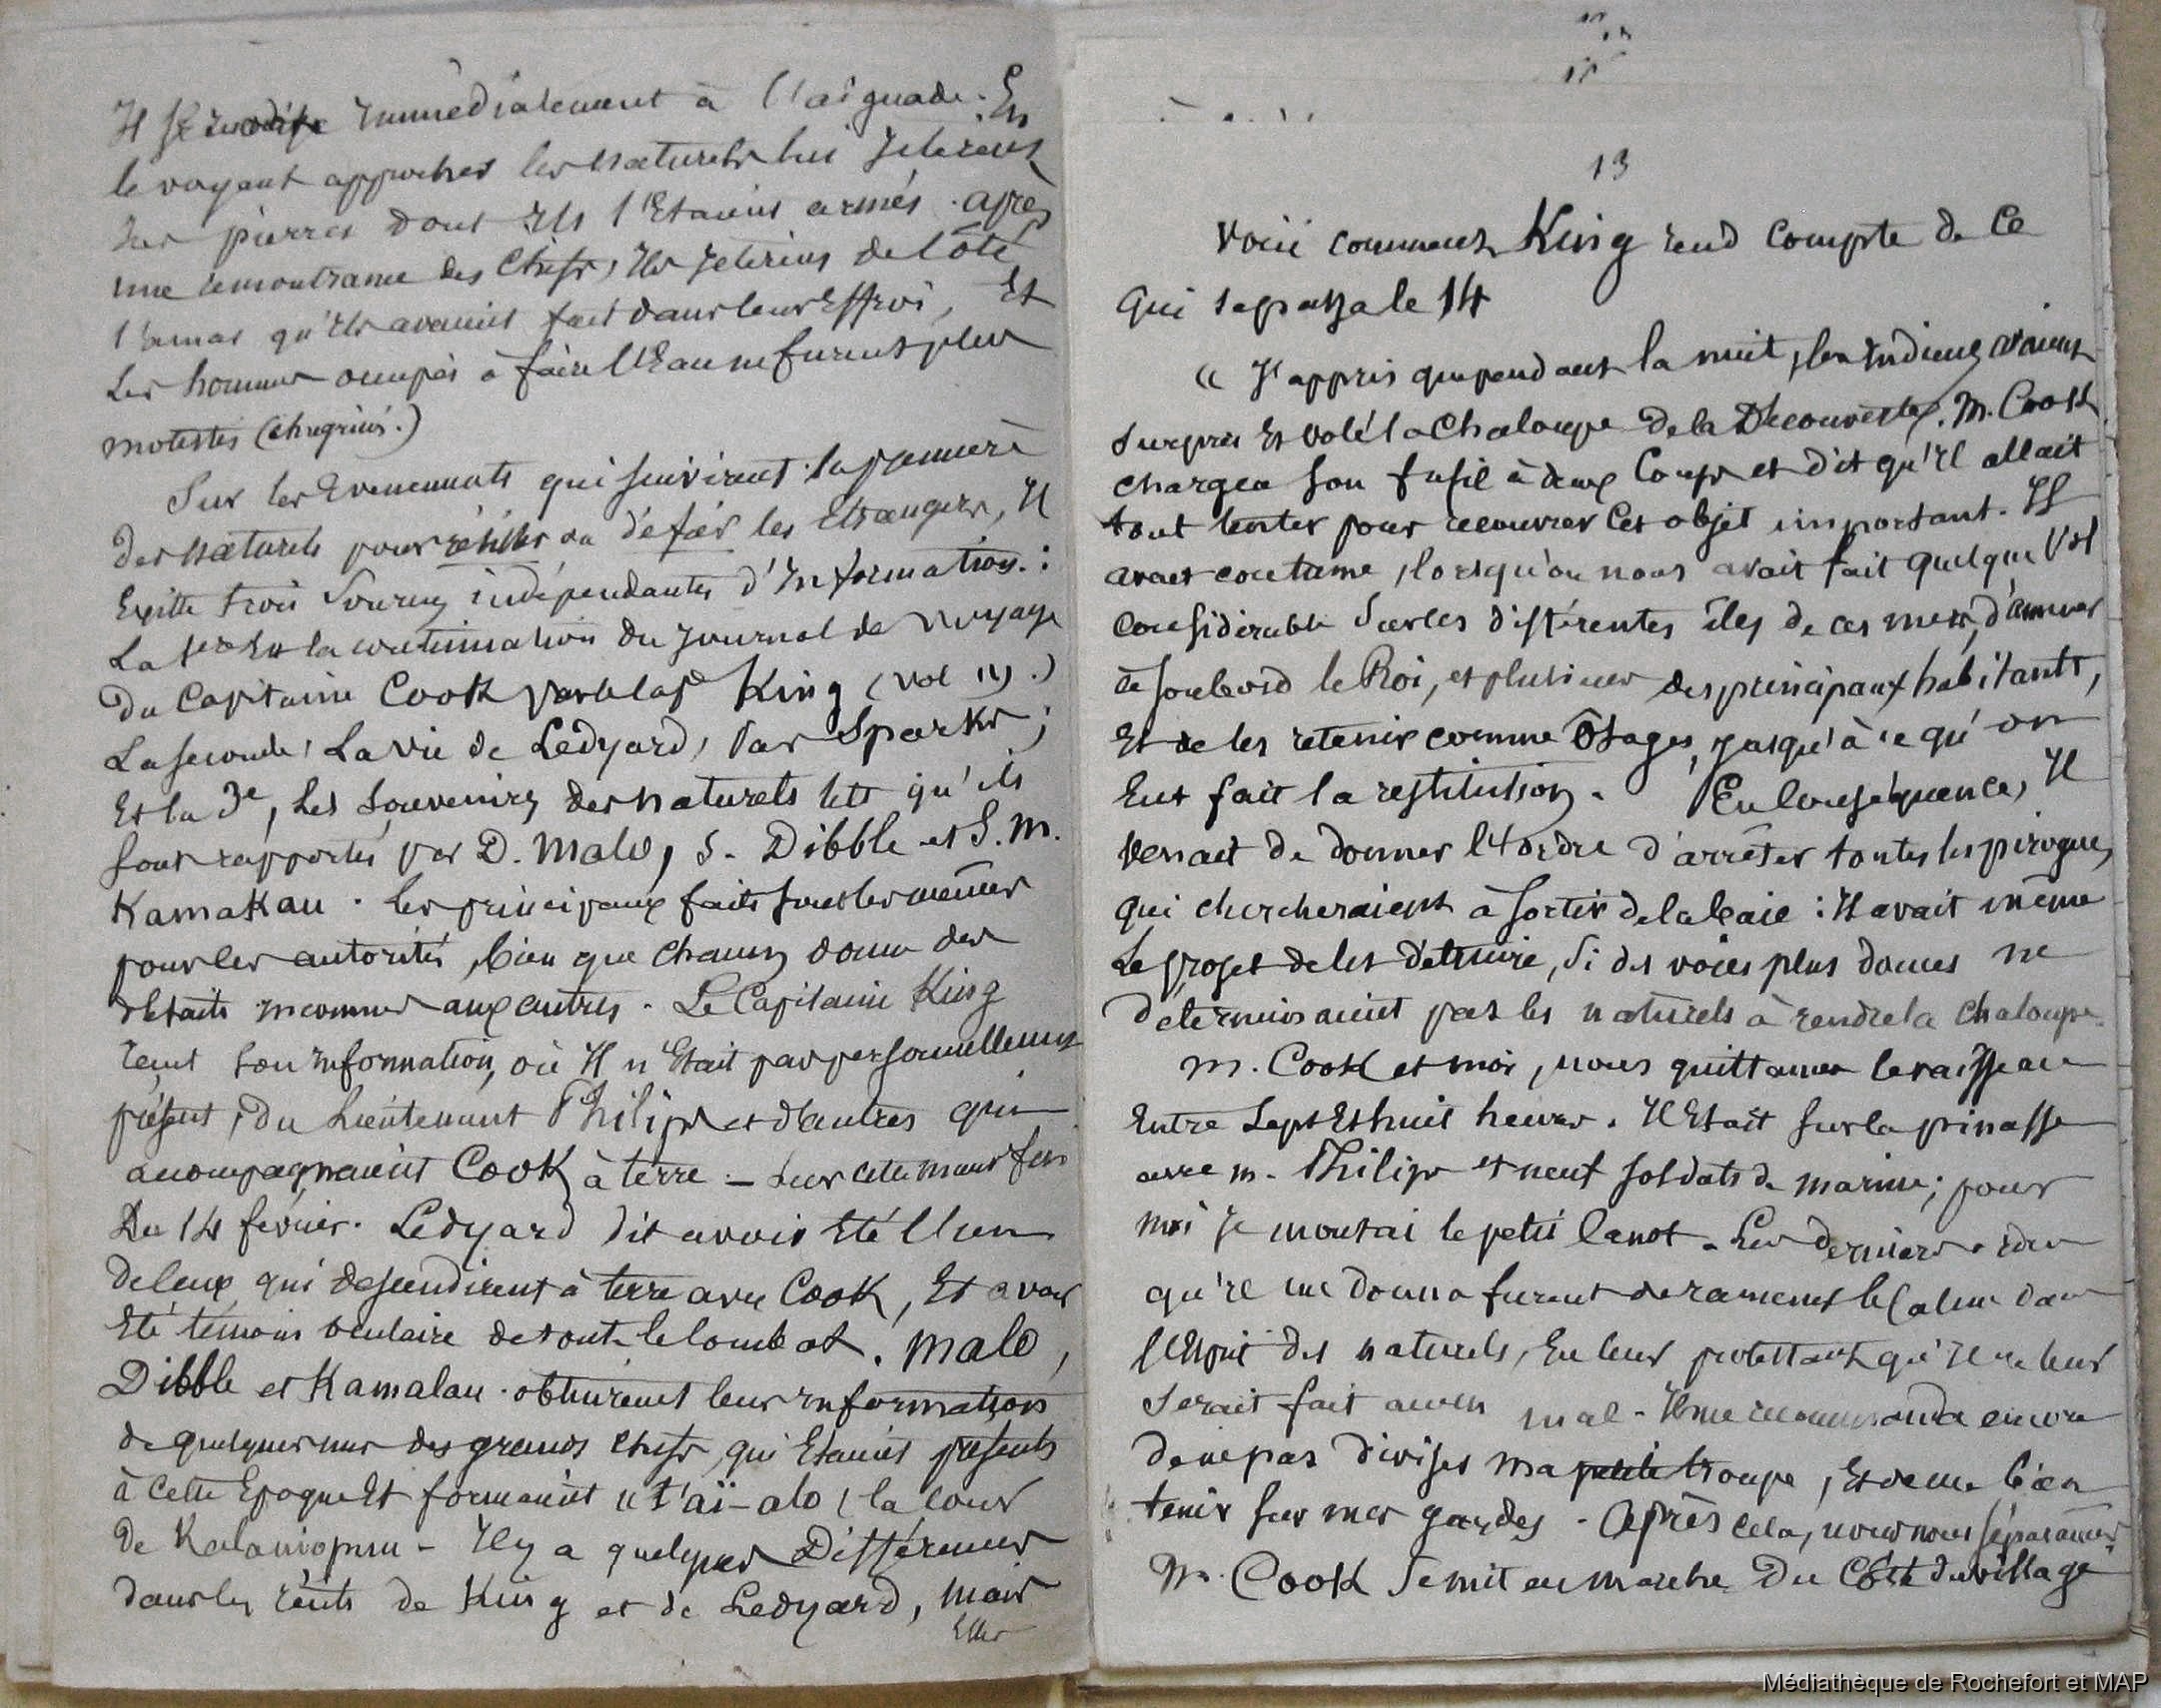 Il se rendit immédiatement à l'aiguade. En
le voyant approcher les naturels lui jetèrent
les pierres dont ils s'étaient armés. après
une remontrance des Chefs, ils jetèrent de Côté
l'amas qu'ils avaient fait dans leur Effroi, Et
les hommes occupés à faire l'Eau ne furent plus
molestés (chagrinés.)
Sur les Evenements qui suivirent la première
des naturels pour résister ou défier les étrangers, Il
Existe trois Sources indépendantes d'Information :
La 1ère Est la continuation du Journal de Voyage
du Capitaine Cook par le Cap King (vol IV.)
La seconde, La vie de Ledyard, Par Sparks ;
Et la 3e, Les Souvenirs des naturels tels qu'ils
sont rapportés par D. Malo, S. Dibble et S. M.
Kamakau. les principaux faits sont les mêmes
pour les autorités, bien que chacun donne des
détails inconnus aux autres. Le Capitaine King
reçut son information, où Il n'Etait pas personnellement
présent, du Lieutenant Philips et d'autres qui
accompagnaient Cook à terre –
Du 14 février. Ledyard dit avoir Eté l'un
de ceux qui descendirent à terre avec Cook, Et avoir
Eté témoin oculaire de tout le combat. Malo,
Dibble et Kamalau obtinrent leur information
de quelques uns des grands chefs, qui Etaient présents
à cette Epoque Et formaient "l'aï-alo, la cour
de Kalaniopuu – Il y a quelques Différences
dans les récits de King et de Ledyard, mais
Elles
13
Voici comment King rend compte de Ce
Qui se passa le 14
« J'appris que pendant la nuit, les Indiens avaient
surpris Et volé la Chaloupe de la Découverte. M. Cook
chargea son fusil à deux Coups et dit qu'Il allait
tout tenter pour recouvrer Cet objet important. Il
avait coutume, lorsqu'on nous avait fait quelque Vol
Considérable Sur les différentes îles de ces mers, d'amener
à son bord le Roi, et plusieurs des principaux habitants,
Et de les retenir comme Ôtages, jusqu'à ce qu'on
Eut fait la restitution. En Conséquence, Il
Venait de donner l'Ordre d'arrêter toutes les pirogues,
qui chercheraient à sortir de la baie : Il avait même
Le projet de les détruire, Si des voies plus douces ne
déterminaient pas les naturels à rendre la Chaloupe.
M. Cook et moi, nous quittames le vaisseau
Entre Sept Et huit heures. Il Etait sur la pinasse
avec M. Philips et neuf soldats de marine; pour
moi je montai le petit Canot. Les derniers ordres
qu'il me donna furent de ramener le Calme dans
l'Esprit des naturels, En leur protestant qu'Il ne leur
Serait fait aucun mal – Il me recommanda encore
de ne pas diviser ma petite troupe, Et de me bien
tenir sur mes gardes. Après cela, nous nous séparâmes,
M. Cook se mit en marche Du Côté du village
Médiathèque de Rochefort et MAP